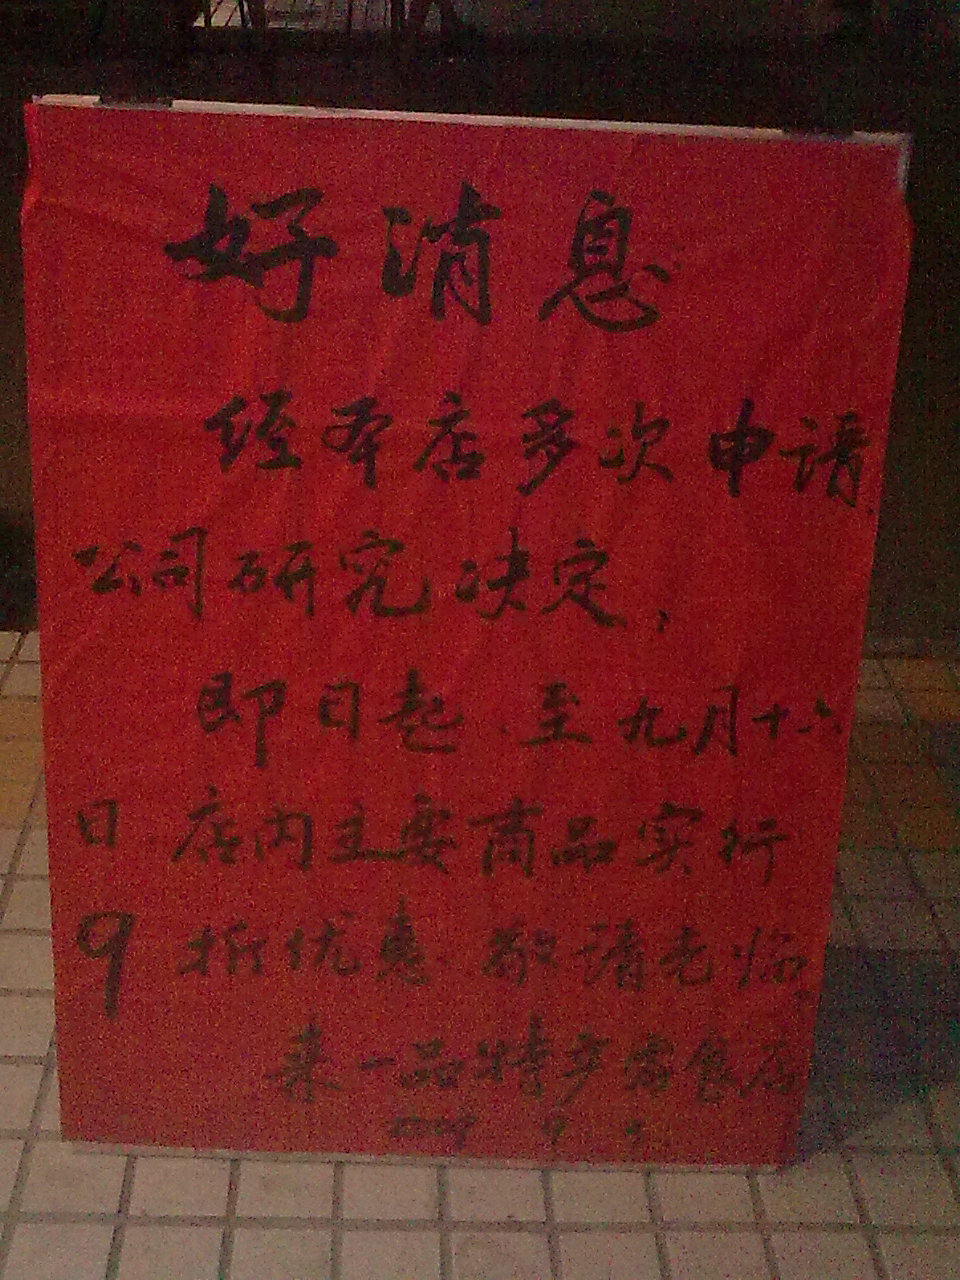 好消息
经本店多次申请
公司研究决定，
即日起.至九月十六
日.店内主要商品实行
9折优惠 敬请光临。
来一品特产零食店